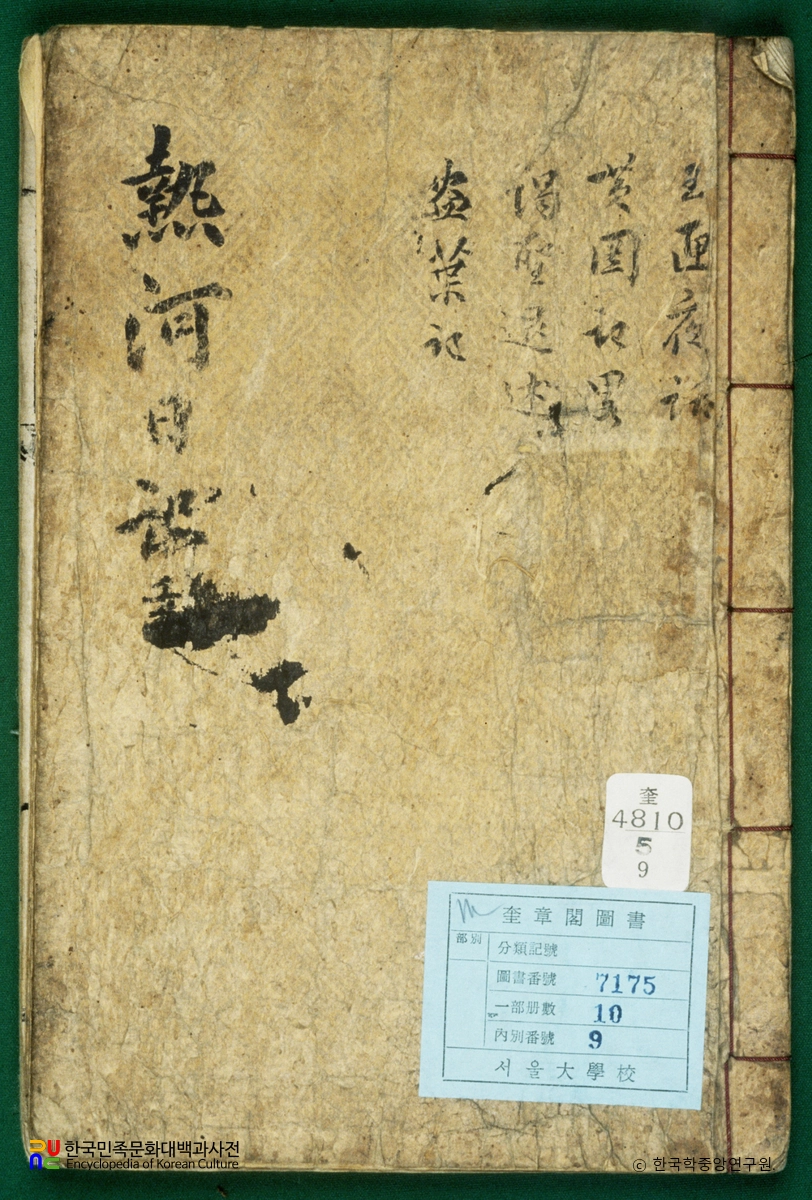 玉匣夜話
黃圖記略
謁聖退述
盎葉記
熱河日記
下
奎
4810
5
9
奎章閣圖書
部別
分類記號
圖書番號 7175
一部册數 10
內別番號 9
서울大學校
한국민족문화대백과사전
Encyclopedia of Korean Culture
ⓒ 한국학중앙연구원